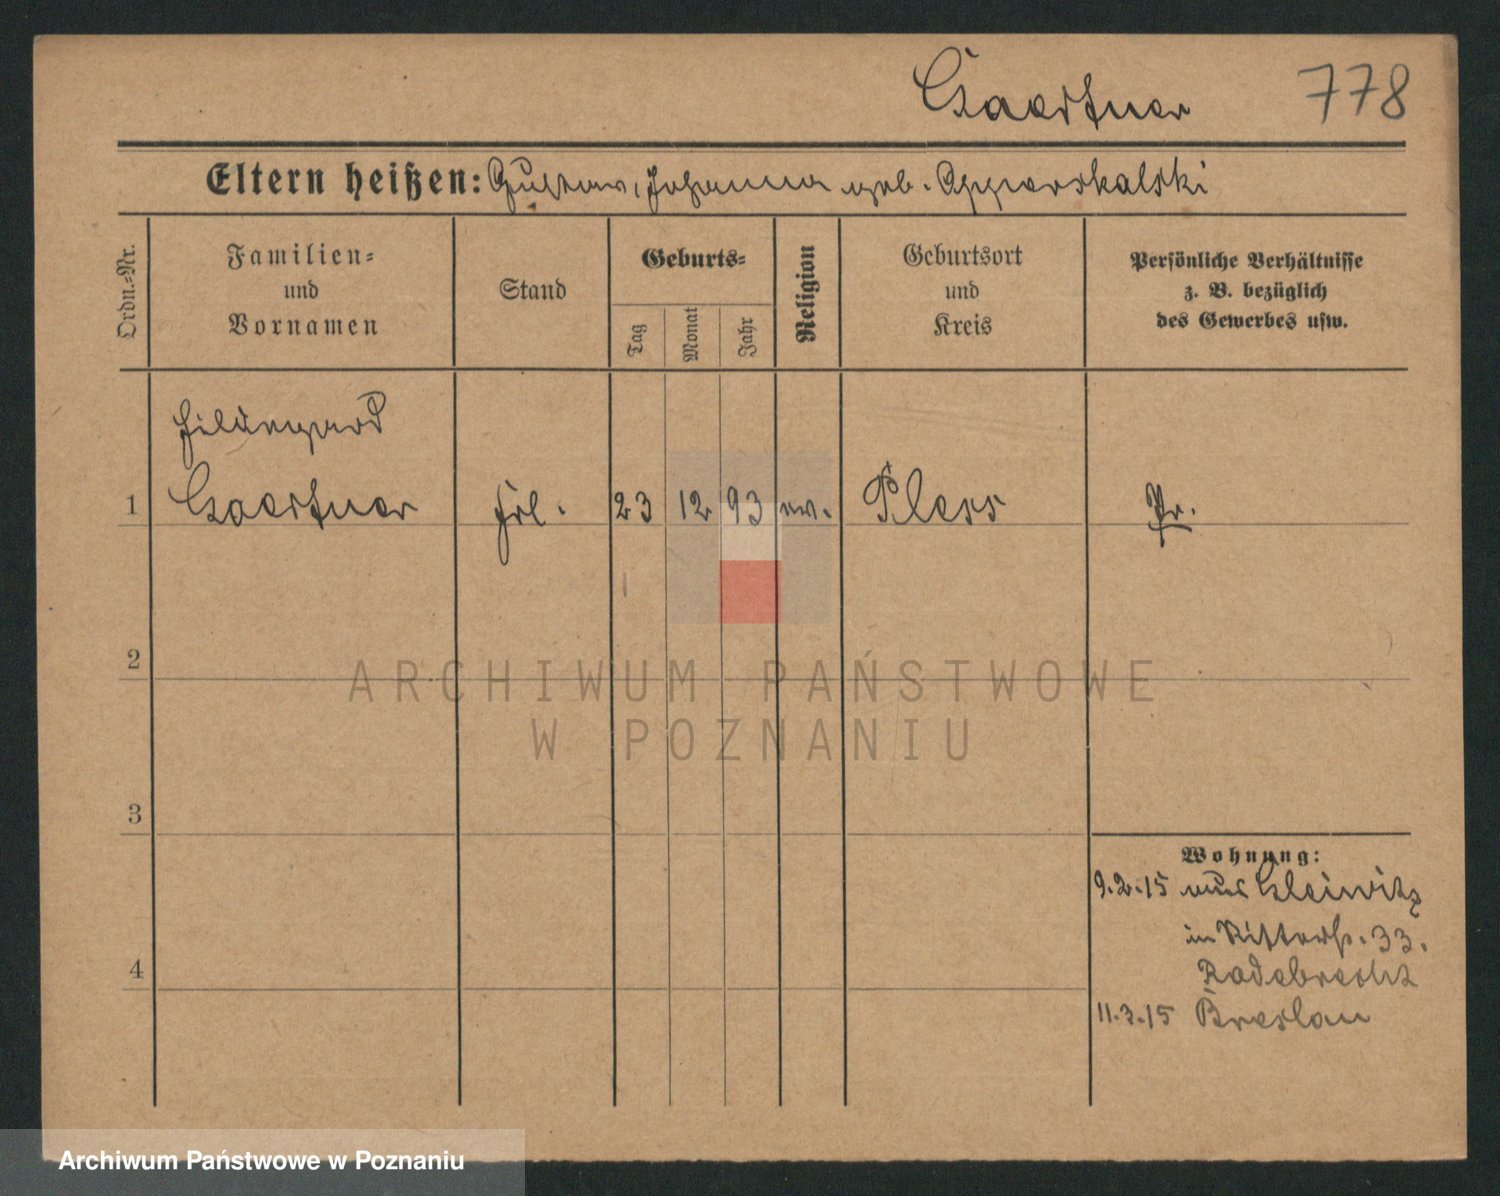 Gaertner 778
Eltern heißen: Gustav, Johanna geb. Apperskalski
Ordn.-Nr.
Familien-
und
Vornamen
Stand
Geburts-
Tag
Monat
Jahr
Religion
Geburtsort
und
Kreis
Persönliche Verhältnisse
z. B. bezüglich
des Gewerbes usw.
Hildegard
1 Gaertner Frl. 23 12 93 ev. Pless Pr.
2
3
4
Wohnung:
9.2.15 aus Gleiwitz
in Ritterstr. 33.
Radebrecht
11.3.15 Breslau
ARCHIWUM PAŃSTWOWE
W POZNANIU
Archiwum Państwowe w Poznaniu